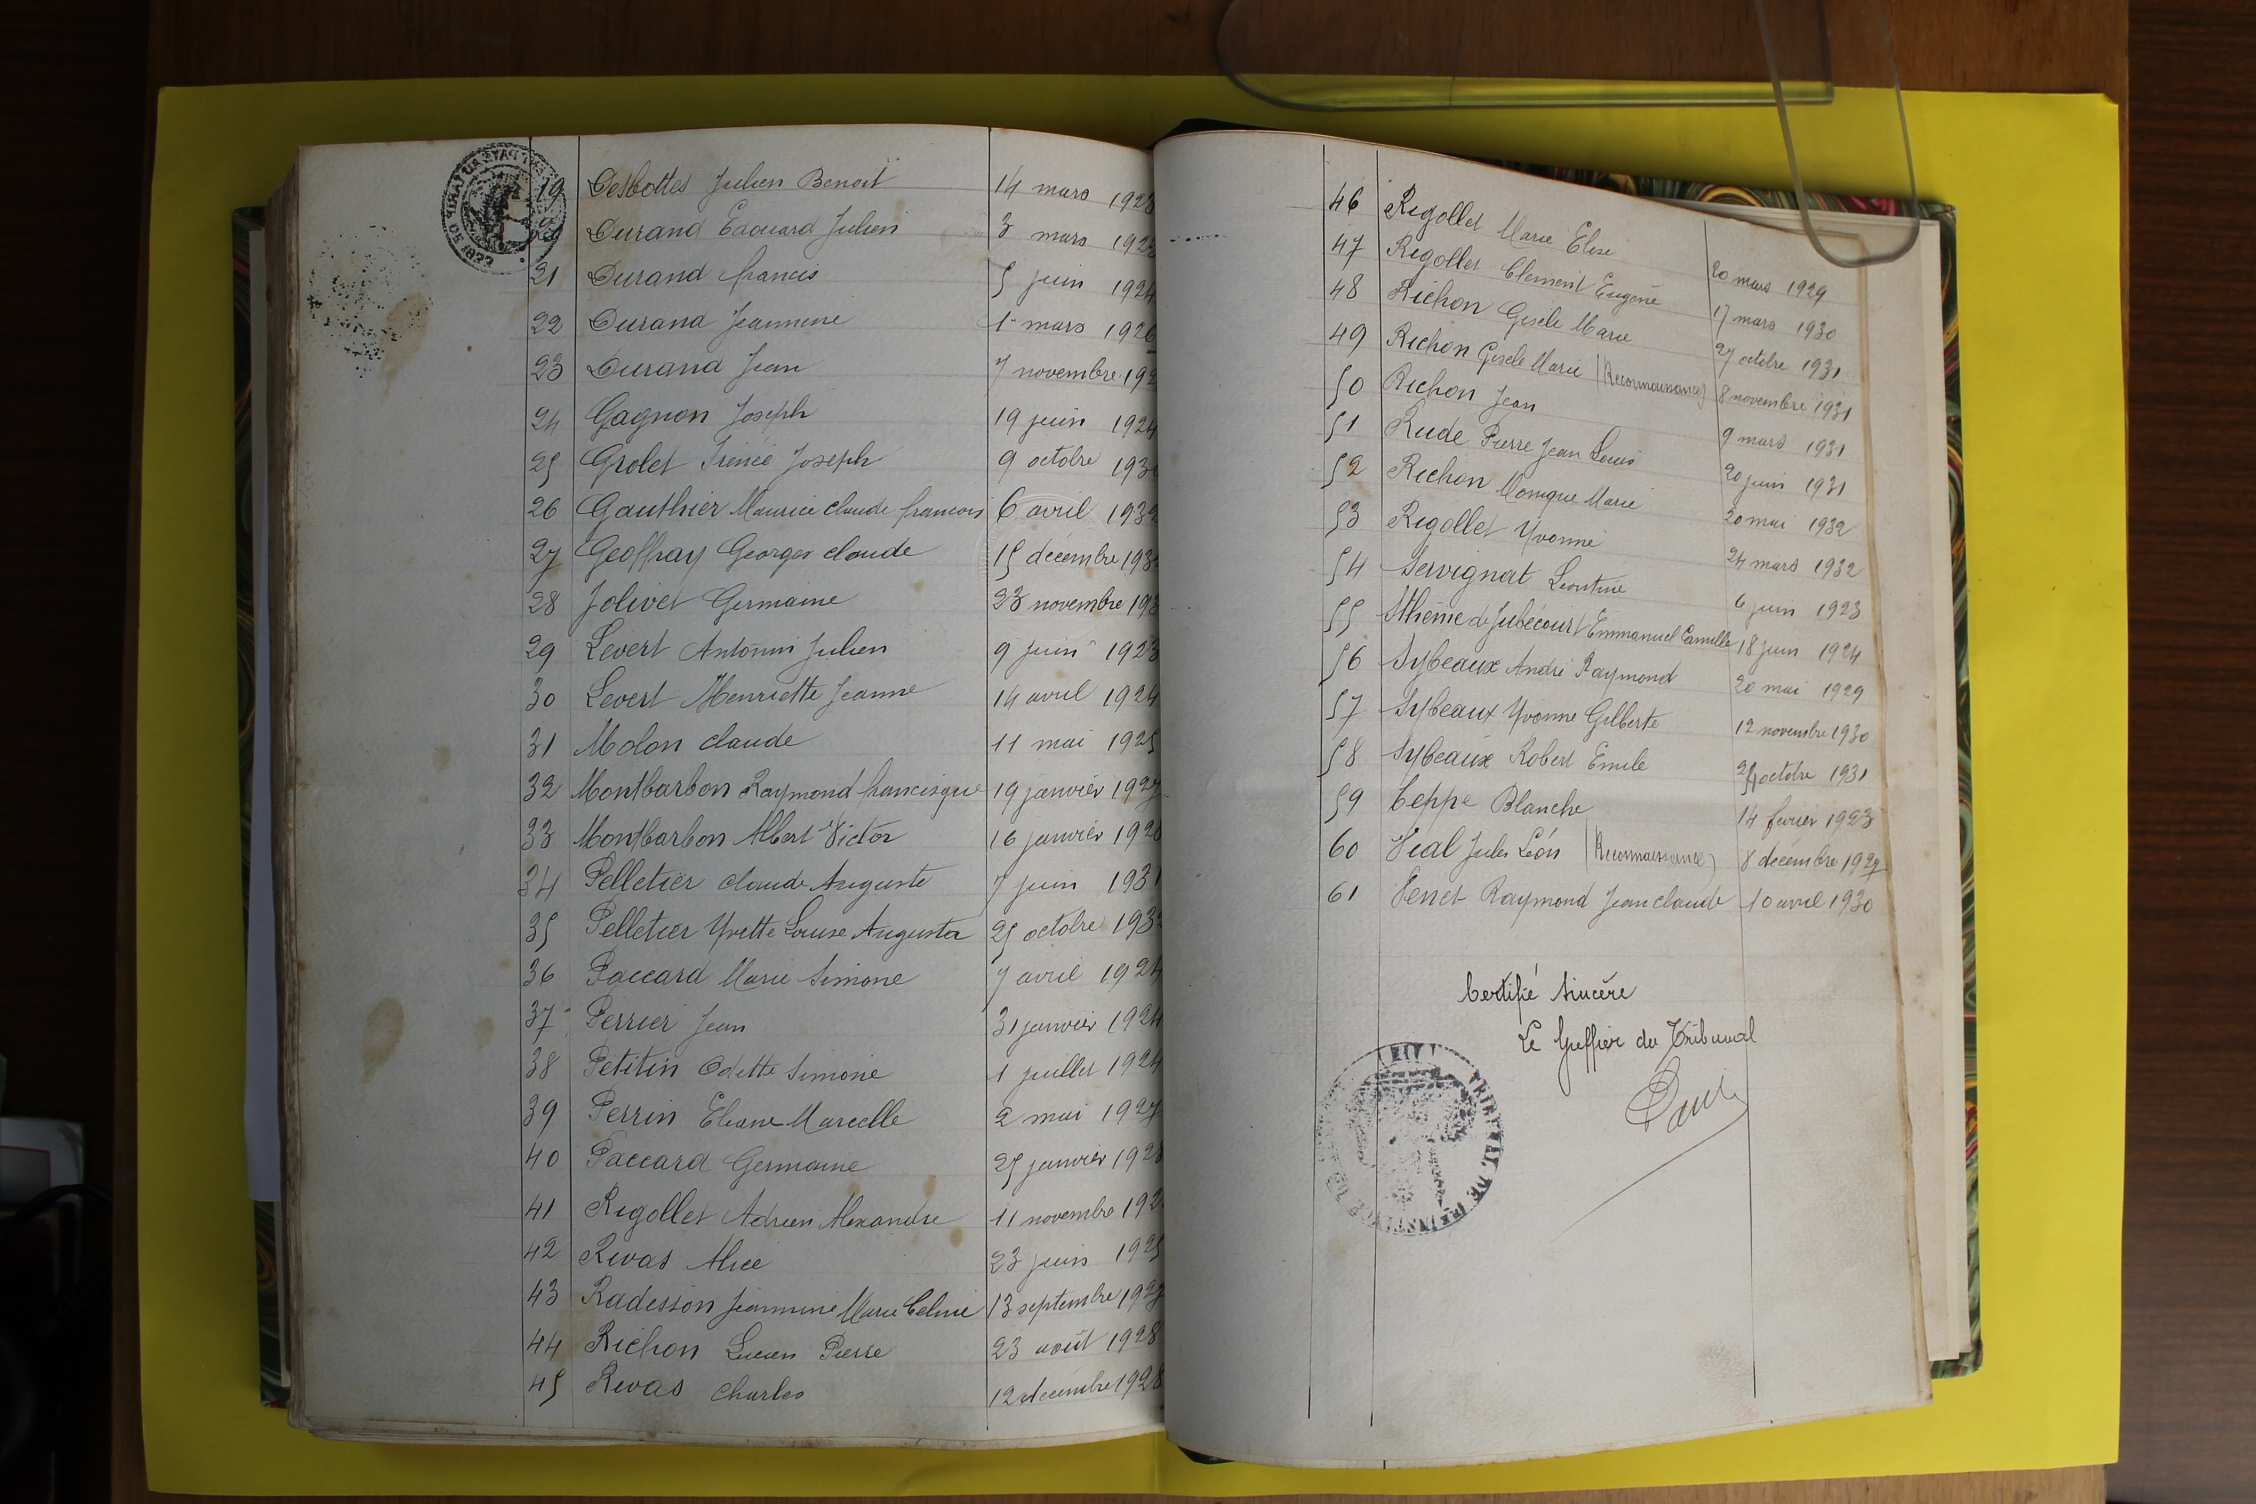 19 Desbottes Julien Benoit 14 mars 1923
20 Durand Edouard Julien 3 mars 192
21 Durand francis 5 juin 1924
22 Durand Jeannine 1 mars 1926
23 Durand Jean 7 novembre 192
24 Gagnon Joseph 19 juin 1924
25 Grolet Irénée Joseph 9 octobre 193
26 Gauthier Maurice claude francois 6 avril 1932
27 Geoffray Georges claude 15 décembre 193
28 Jolivet Germaine 23 novembre 19
29 Levert Antonin Julien 9 juin 1923
30 Levert Henriette Jeanne 14 avril 1924
31 Molon claude 11 mai 1925
32 Montbarbon Raymond francisque 19 janvier 1927
33 Montbarbon Albert Victor 16 janvier 192
34 Pelletier claude Auguste 7 juin 1931
35 Pelletier Yvette Louise Augusta 25 octobre 193
36 Paccard Marie Simone 7 avril 1924
37 Perrier Jean 31 janvier 1924
38 Petitin Odette Simone 1 juillet 1924
39 Perrin Eliane Marcelle 2 mai 1927
40 Paccard Germaine 25 janvier 1928
41 Rigollet Adrien Alexandre 11 novembre 192
42 Rivas Alice 23 juin 1925
43 Radisson Jeannine Marie Celine 13 septembre 1927
44 Richon Lucien Pierre 23 août 1928
45 Rivas Charles 12 décembre 1928
46 Rigollet Marie Elise 20 mars 1929
47 Rigollet Clement Eugene 17 mars 1930
48 Richon Gisèle Marie 27 octobre 1931
49 Richon Gisele Marie (Reconnaissance) 8 novembre 1931
50 Richon Jean 9 mars 1931
51 Rude Pierre Jean Louis 20 juin 1931
52 Richon Monique Marie 20 mai 1932
53 Rigollet Yvonne 24 mars 1932
54 Servignat Léontine 6 juin 1923
55 Sthème de Jubécourt Emmanuel Camille 18 juin 1924
56 Sybeaux André Raymond 20 mai 1929
57 Sybeaux Yvonne Gilberte 12 novembre 1930
58 Sybeaux Robert Emile octobre 1931
59 Ceppe Blanche 14 février 1923
60 Vial Jules Léon (Reconnaissance) 8 décembre 1927
61 Venet Raymond Jean claude 10 avril 1930
Certifié Sincère
Le Greffier du Tribunal
TRIBUNAL DE 1RE INSTANCE